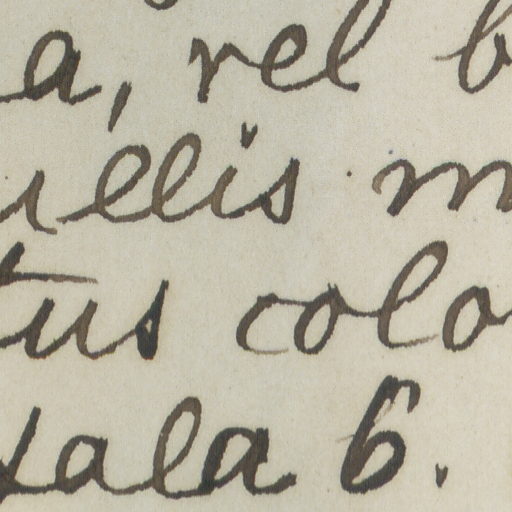 a, vel b
ellis m
tus colo
ala 6.